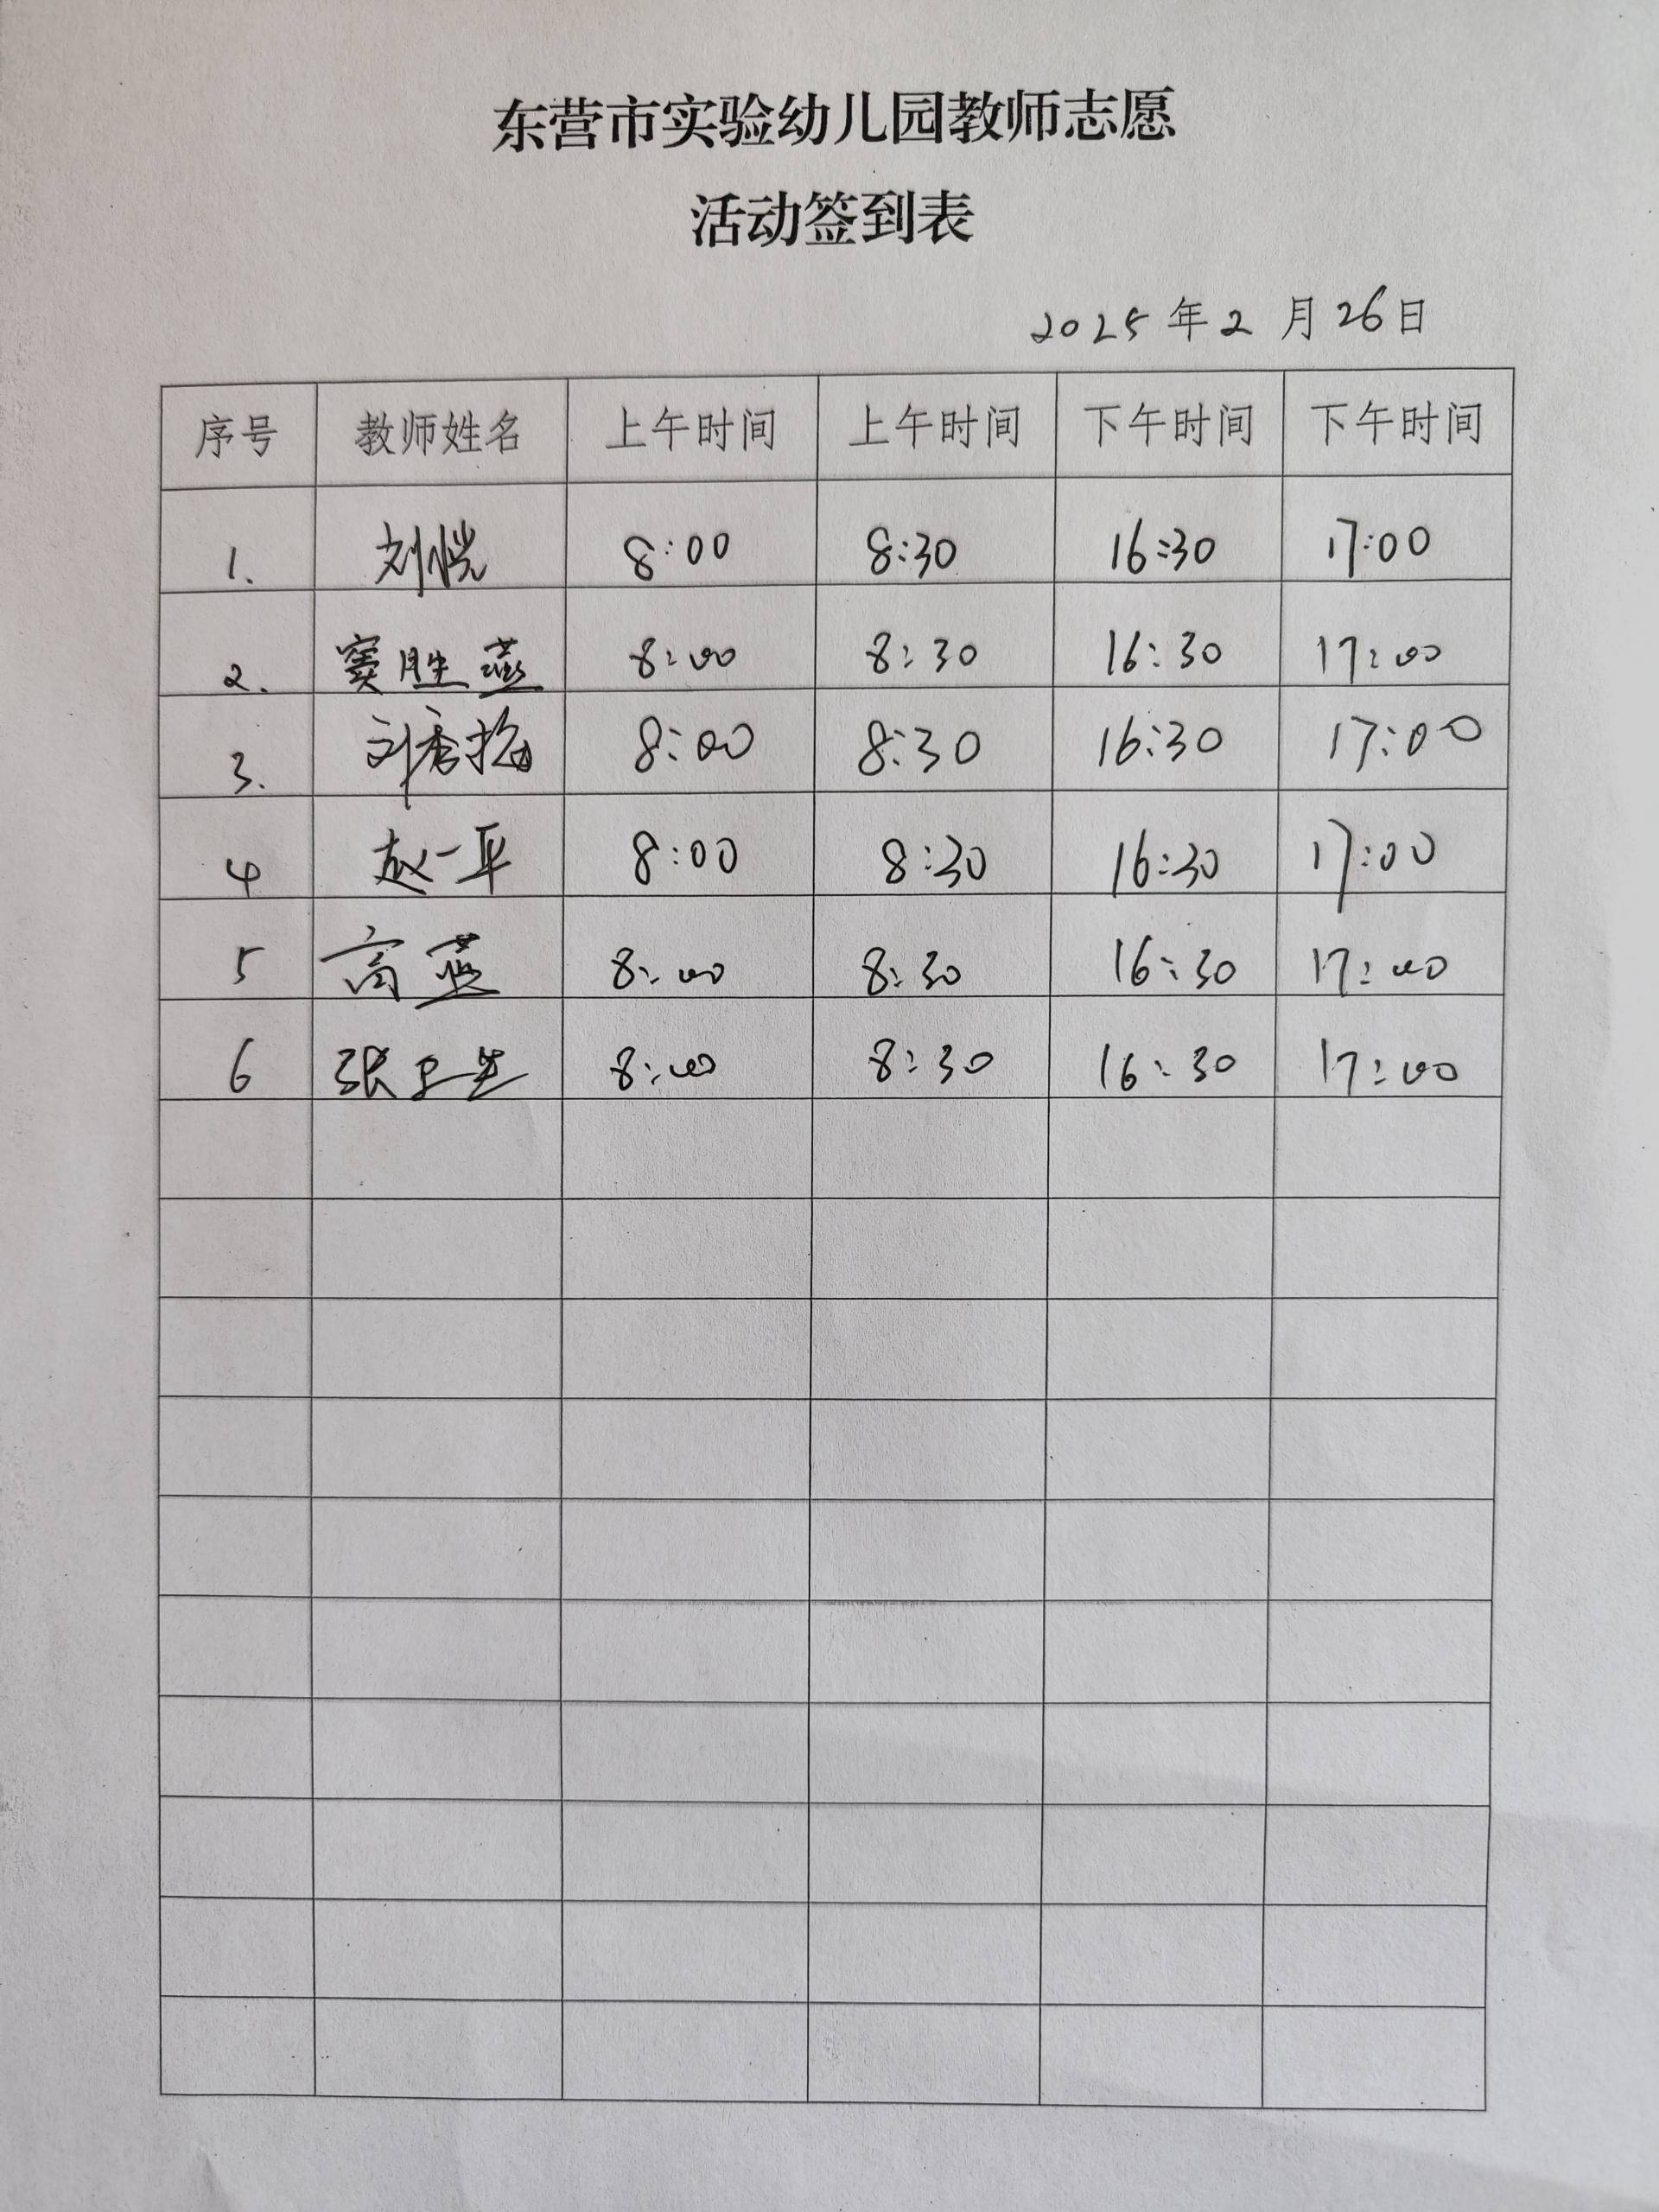 东营市实验幼儿园教师志愿
活动签到表
2025年2月26日
序号 教师姓名 上午时间 上午时间 下午时间 下午时间
1. 刘恺 8:00 8:30 16:30 17:00
2. 窦胜燕 8:00 8:30 16:30 17:00
3. 刘秀梅 8:00 8:30 16:30 17:00
4 赵一平 8:00 8:30 16:30 17:00
5 高燕 8:00 8:30 16:30 17:00
6 张 8:00 8:30 16:30 17:00